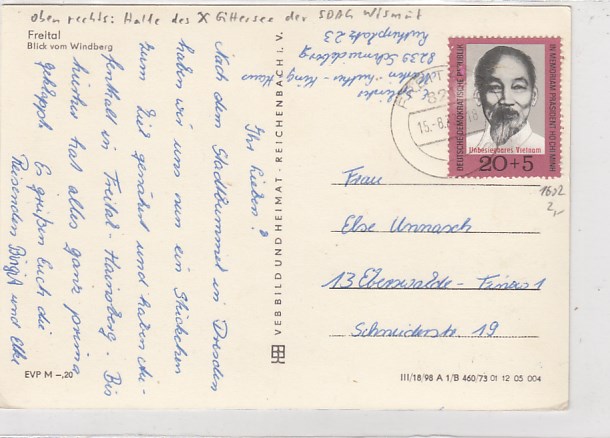 oben rechts: Halde des X Gittersee der SDAG Wismut
Freital
Blick vom Windberg
Ihr Lieben!
Nach dem Stadtbummel in Dresden
haben wir uns nun ein Stückchen
zum Ziel genähert und haben Au-
fenthalt in Freital-Hainsberg. Bis
hierher hat alles ganz prima
geklappt. Es grüßen Euch die
Reisenden Birgit und Elke
EVP M –,20
VEB BILD UND HEIMAT · REICHENBACH I. V.
8239 Schmiedeberg
Martin-Luther-King
Haus
FREITAL
15.-8.
DEUTSCHE DEMOKRATISCHE REPUBLIK
IN MEMORIAM PRÄSIDENT HO CHI MINH
Unbesiegbares Vietnam
20+5
1602
2,-
Frau
Else Unnasch
13 Eberswalde-Finow 1
Schneiderstr. 19
III/18/98 A 1/B 460/73 01 12 05 004